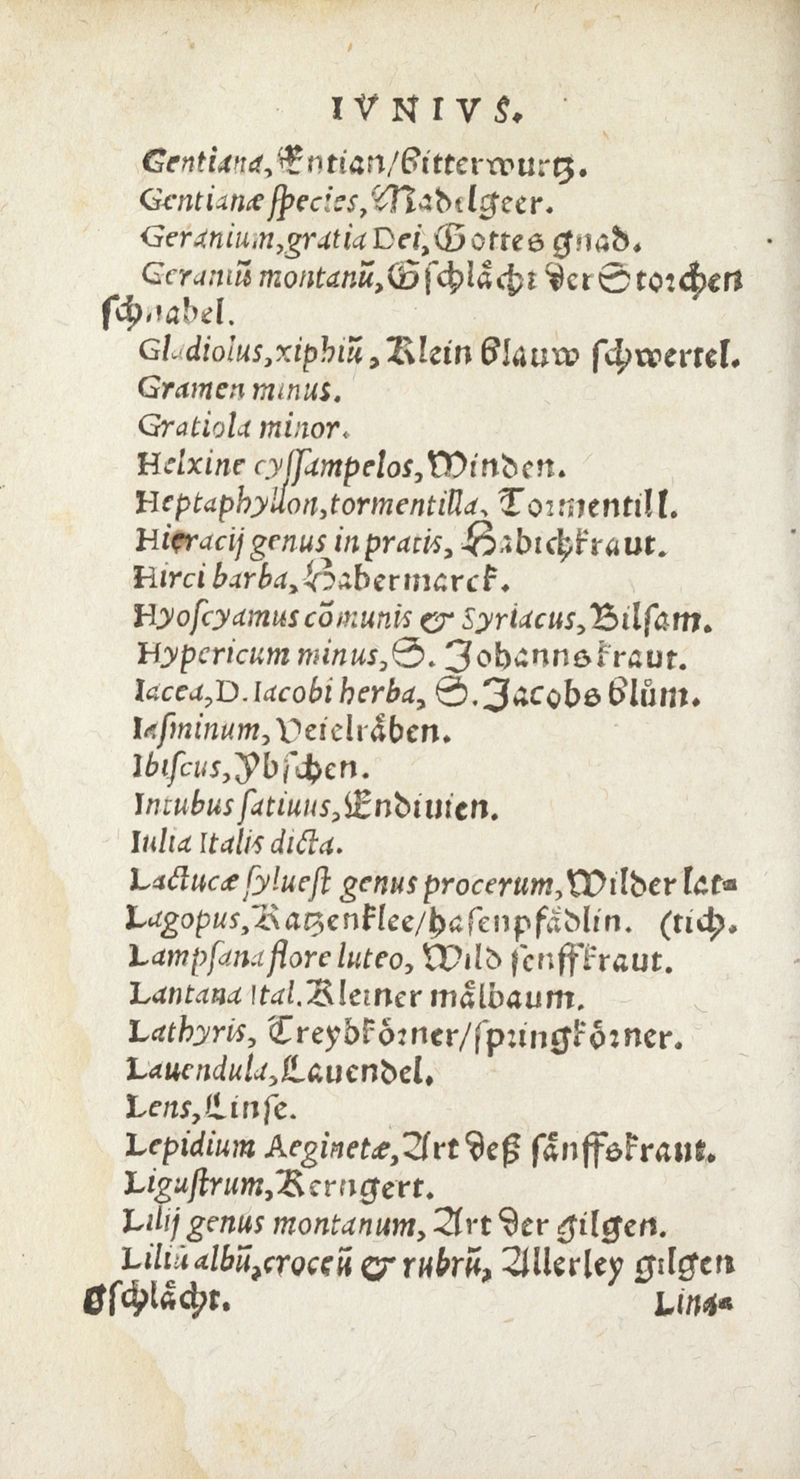 IVNIVS.
Gentiana, Entian/Bitterwurtz.
Gentianæ species, Madelgeer.
Geranium, gratia Dei, Gottes gnad.
Geraniũ montanũ, Gschlåcht der Storchen
schnabel.
Gladiolus, xiphiũ, Klein Blauw schwertel.
Gramen minus.
Gratiola minor.
Helxine cyssampelos, Winden.
Heptaphyllon, tormentilla, Tormentill.
Hieracij genus in pratis, Habichkraut.
Hirci barba, Habermarck.
Hyoscyamus cõmunis & Syriacus, Bilsam.
Hypericum minus, S. Johannskraut.
Iacea, D. Iacobi herba, S. Jacobs Blům.
Iasminum, Veielråben.
Ibiscus, Ybschen.
Intubus satiuus, Endiuien.
Iulia Italis dicta.
Lactucæ syluest genus procerum, Wilder lat=
Lagopus, Katzenklee/hasenpfådlin. (tich.
Lampsana flore luteo, Wild senffkraut.
Lantana Ital. Kleiner målbaum.
Lathyris, Treybkörner/springkörner.
Lauendula, Lauendel.
Lens, Linse.
Lepidium Aeginetæ, Art deß sånffskraut.
Ligustrum, Kerngert.
Lilij genus montanum, Art der gilgen.
Liliũ albũ, croceũ & rubrũ, Allerley gilgen
gschlåcht. Lina=